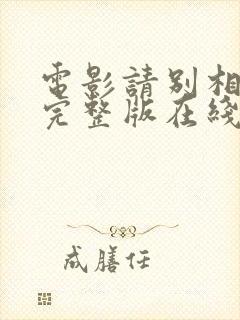 電影請別相
完整版在綫
成膳任